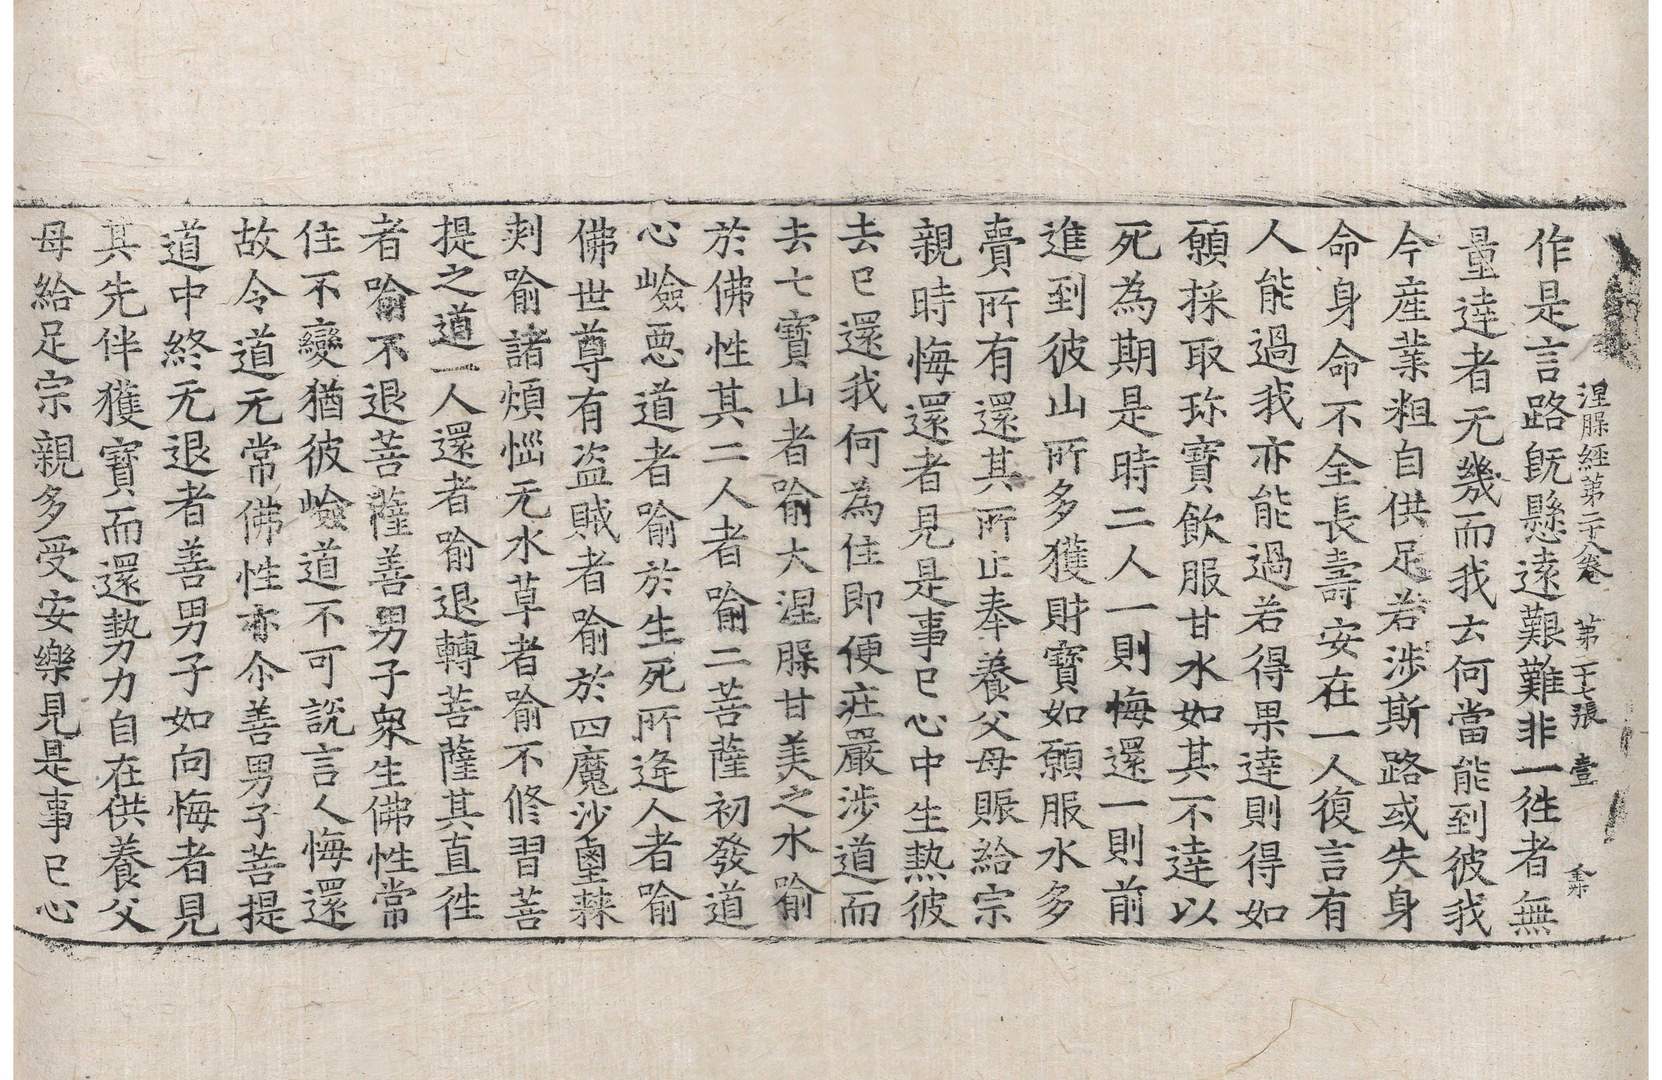 涅槃経第二十八卷 第二十七張 壹
作是言路既懸遠艱難非一徃者無
量達者无幾而我云何當能到彼我
今産業粗自供足若涉斯路或失身
命身命不全長壽安在一人復言有
人能過我亦能過若得果達則得如
願採取珎寶飲服甘水如其不達以
死為期是時二人一則悔還一則前
進到彼山所多獲財寶如願服水多
賷所有還其所止奉養父母賑給宗
親時悔還者見是事已心中生熱彼
去已還我何為住即便庄嚴涉道而
去七寶山者喻大涅槃甘美之水喻
於佛性其二人者喻二菩薩初發道
心嶮惡道者喻於生死所逢人者喻
佛世尊有盜賊者喻於四魔沙鹵棘
刺喻諸煩惱无水草者喻不修習菩
提之道一人還者喻退轉菩薩其直徃
者喻不退菩薩善男子衆生佛性常
住不變猶彼嶮道不可說言人悔還
故令道无常佛性亦尒善男子菩提
道中終无退者善男子如向悔者見
其先伴獲寶而還勢力自在供養父
母給足宗親多受安樂見是事已心